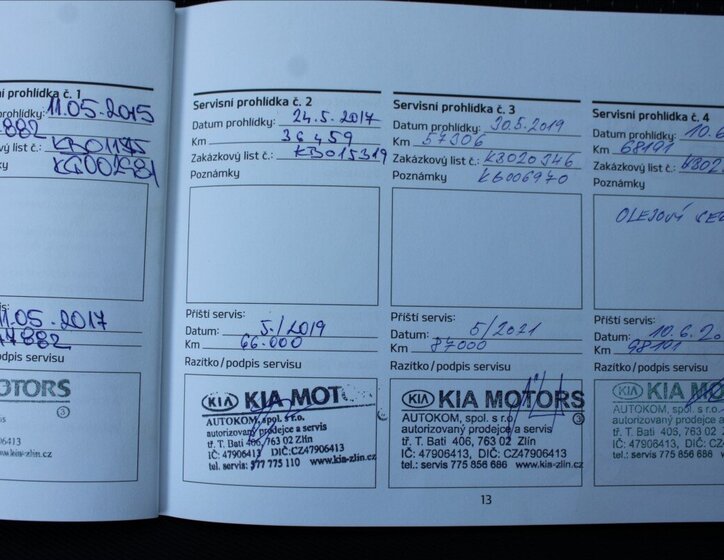 ní prohlídka č. 1
prohlídky: 11.05.2015
882
ový list č.:
ky
is:
11.05.2017
882
podpis servisu
MOTORS
3
servis
6413
-zlin.cz
Servisní prohlídka č. 2
Datum prohlídky: 24.5.2017
Km 36 459
Zakázkový list č.: KB015319
Poznámky
Příští servis:
Datum: 5./2019
Km 66.000
Razítko/podpis servisu
KIA KIA MOT
AUTOKOM, spol. s r.o.
autorizovaný prodejce a servis
tř. T. Bati 406, 763 02 Zlín
IČ: 47906413 DIČ:CZ47906413
tel. servis: 577 775 110 www.kia-zlin.cz
Servisní prohlídka č. 3
Datum prohlídky: 30.5.2019
Km 57306
Zakázkový list č.: KB020346
Poznámky KB006970
Příští servis:
Datum: 5/2021
Km 87000
Razítko/podpis servisu
KIA KIA MOTORS
AUTOKOM, spol. s r.o. 3
autorizovaný prodejce a servis
tř. T. Bati 406, 763 02 Zlín
IČ: 47906413, DIČ: CZ47906413
tel.: servis 775 856 686 www.kia-zlin.cz
Servisní prohlídka č. 4
Datum prohlídky: 10.6
Km 68191
Zakázkový list č.:
Poznámky
OLEJOVÝ SE
Příští servis:
Datum: 10.6.20
Km 98191
Razítko/podpis servisu
KIA KIA MO
AUTOKOM, spol. s r.o.
autorizovaný prodejce a se
tř. T. Bati 406, 763 02 Z
IČ: 47906413, DIČ: CZ479
tel.: servis 775 856 686 www.
13